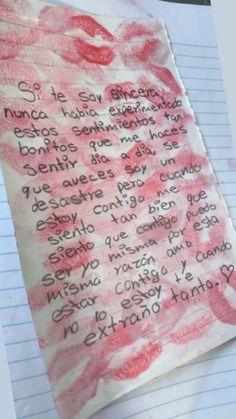 Si te soy sincera
nunca había experimentado
estos sentimientos tan
bonitos que me haces
sentir día a día, se
que aveces soy un
desastre pero cuando
estoy contigo me
siento tan bien que
siento que contigo puedo
ser yo misma por esta
misma razón amo
estar contigo y cuando
no lo estoy te
extraño tanto.♡